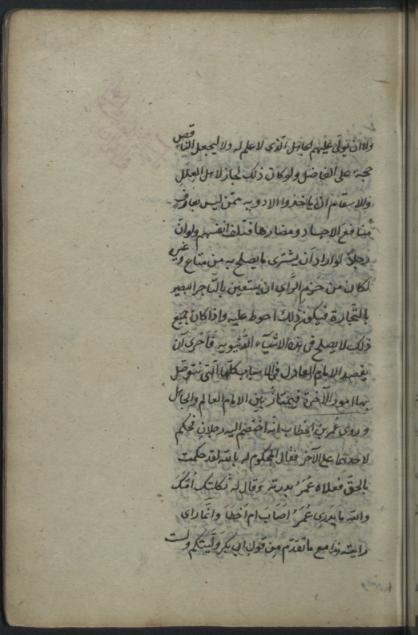 ولا ان يولى عليهم الجاهل الذى لا علم له ولا ليجعل الناقص
حجة على الفاضل ولو كان ذلك لجاز لاهل العلل
والاسقام ان ياخذوا الادوية ممن ليس بعارف
منافع الاجساد ومضارها فتلف انفسهم ولو ان
رجلا لو اراد ان يشترى ما يصلح به من متاع وغيره
لكان من حزم الراى ان يستعين بالتاجر البصير
بالتجارة فيكون ذلك احوط عليه واذا كان جميع
ذلك لا يصلح فى هذه الاشياء الدنيوية فاحرى ان
يقصد الامام العادل فى الاسباب كلها التى يتوصل
بها امور الآخرة فيمتاز بين الامام العالم والجاهل
وروى عمر بن الخطاب انه اختصم اليه رجلان فحكم
لاحدهما على الآخر فقال المحكوم له بالله لقد حكمت
بالحق فعلاه عمر بدرته وقال له ثكلتك امك
والله ما يدرى عمر اصاب ام اخطا وانما راى
رايته هذا مع ما تقدم من قول ابى بكر وليتكم ولست